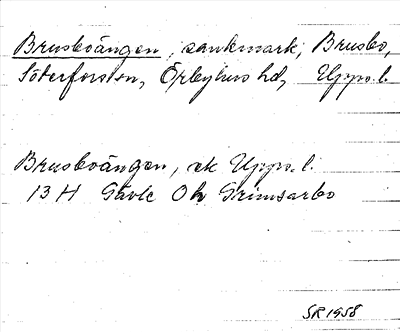 Brusboängen, sankmark, Brusbo,
Söderforsten, Örbyhus hd, Upps. l.
Brusboängen, ek Upps. l.
13 H Gävle Oh Grimsarbo
SR 1958